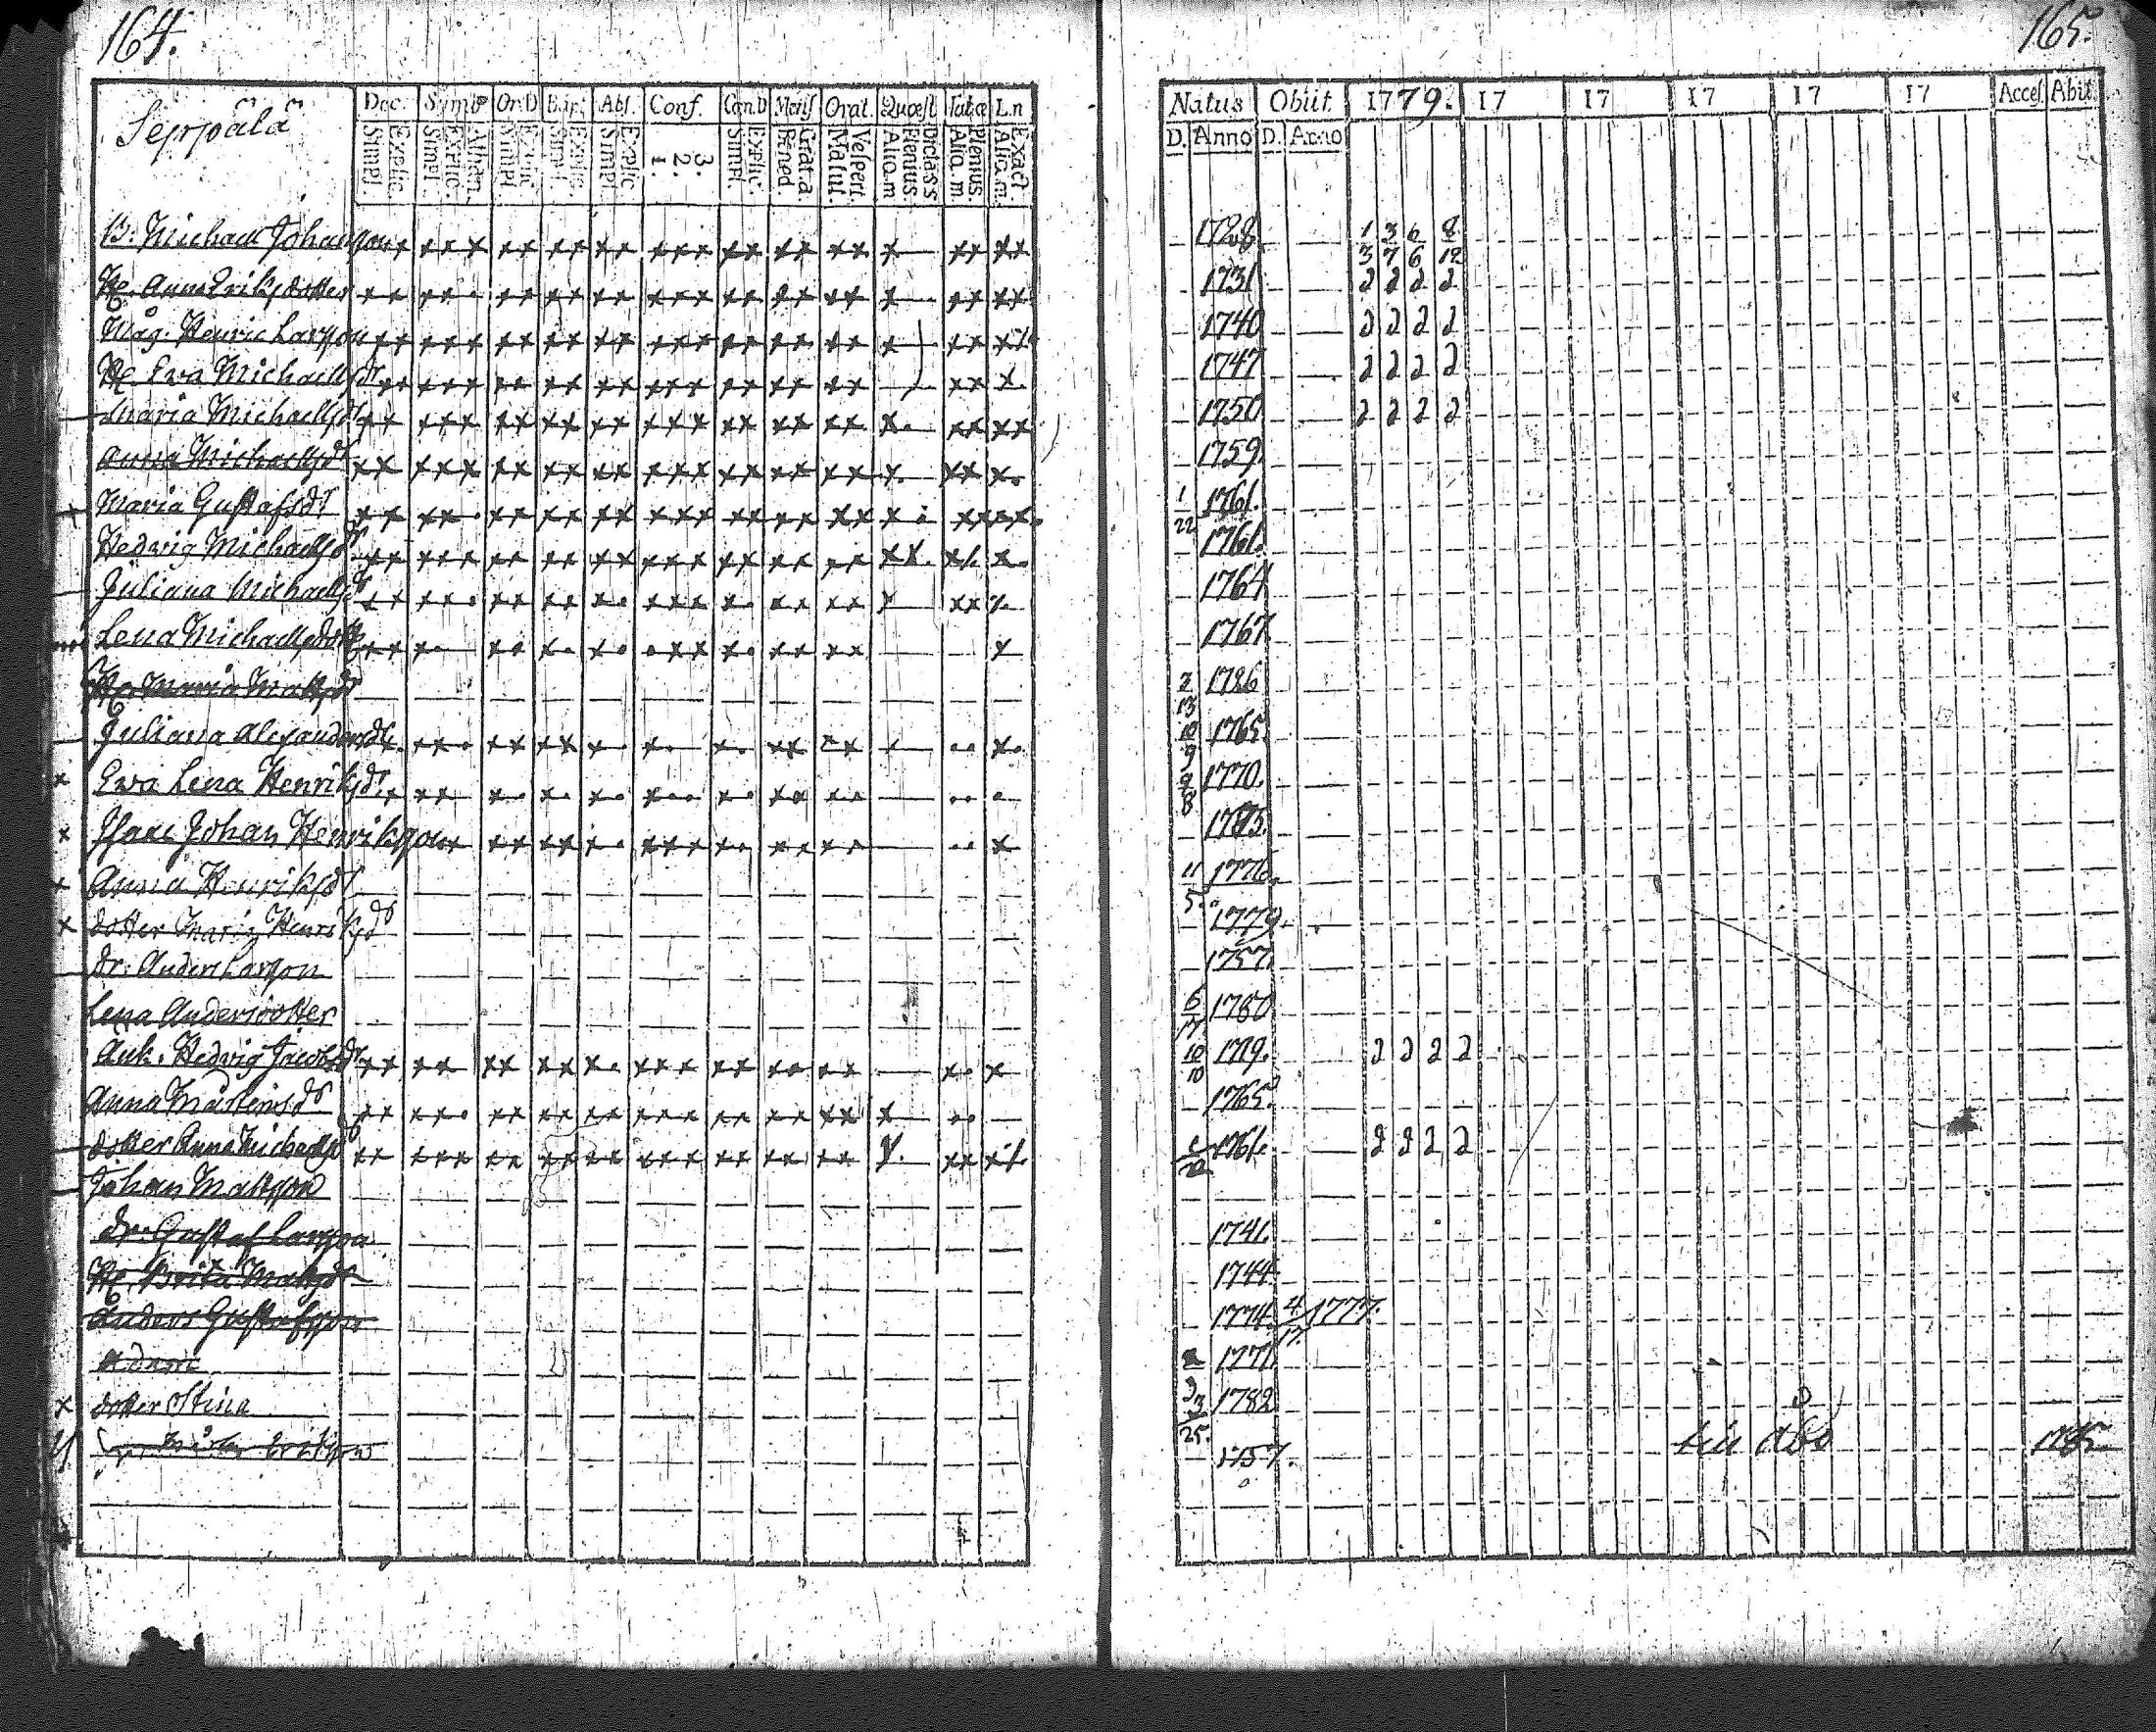 164.
Seppälä
Dec. Symb Or.D Bapt. Abs. Conf. Cœn.D Mens Orat. Quæst Tabœ L.n
Simpl. Explic. Simpl. Explic. Athan. Simpl. Explic. Simpl. Explic. Simpl. Explic. 1. 2. 3. Simpl. Explic. Bened. Grat.a Matut. Vespert. Aliq.m Plenius. Dictas s Aliq.m Plenius. Aliq.m. Exact
B: Michael Johansson
H. Anna Eriksdotter
Måg. Henric Larsson
H. Eva Michaelsdr
Maria Michaelsdr
Anna Michaelsdr
Maria Gustafsdr
Hedvig Michaelsdr
Juliana Michaelsdr
Lena Michaelsdotter
H. Maria Mattsdr
Juliana Alexandersdr.
Eva Lena Henriksdr
Isaac Johan Henriksson
Anna Henriksdr
dotter Maria Henriksdr
dr. Anders Larsson
Lena Andersdotter
Enk. Hedvig Jacobsdr
Anna Mårtensdr
dotter Anna Michaelsdr
Johan Mattsson
dr. Gustaf Larsson
H. Brita Mattsdr
Anders Gustafsson
Adam
dotter Stina
165.
Natus Obiit. 1779. 17 17 17 17 17 Acces. Abiit
D. Anno D. Anno
1728 1 3 6 8
3 7 6 12
1731 2 2 2 2
1740 2 2 2 2
1747 2 2 2 2
1750 2 2 2 2
1759.
1/22 1761.
1761.
1764
1767
1726
1765.
1770.
11/5 1776.
1779.
1757.
6/17 1780
10/10 1719. 2 2 2 2
1765.
1761. 2 2 2 2
1741.
1744.
1774. 4/17 1777.
1771
3/25. 1782
1757. till Åbo